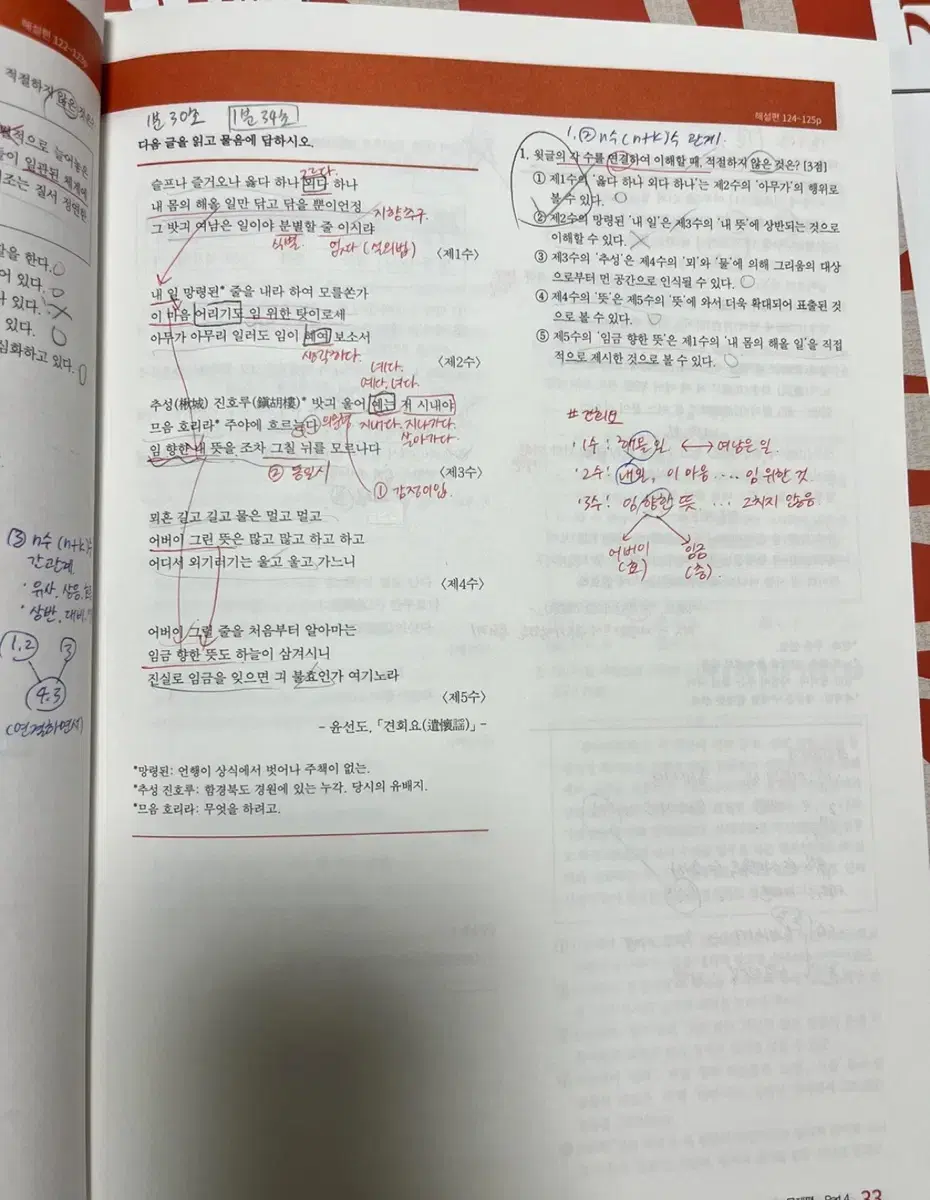 해설편 122~123p
적절하지 않은 것은?
해설편 124~125p
1분 30초 1분 34초
다음 글을 읽고 물음에 답하시오.
슬프나 즐거오나 옳다 하나 외다 하나
내 몸의 해올 일만 닦고 닦을 뿐이언정
지향 추구.
그 밧긔 여남은 일이야 분별할 줄 이시랴
식별. 있다 (설의법)
〈제1수〉
내 일 망령된* 줄을 내라 하여 모를쏜가
이 마음 어리기도 임 위한 탓이로세
아무가 아무리 일러도 임이 혜여 보소서
생각하다.
〈제2수〉
녜다.
예다, 녀다.
추성(楸城) 진호루(鎭胡樓)* 밧긔 울어 예는 저 시내야
므음 호리라* 주야에 흐르는다
의문형
지내다. 지나가다.
살아가다.
임 향한 내 뜻을 조차 그칠 뉘를 모르나다
② 동일시
〈제3수〉
① 감정이입.
뫼흔 길고 길고 물은 멀고 멀고
어버이 그린 뜻은 많고 많고 하고 하고
어디서 외기러기는 울고 울고 가느니
〈제4수〉
어버이 그릴 줄을 처음부터 알아마는
임금 향한 뜻도 하늘이 삼겨시니
진실로 임금을 잊으면 긔 불효인가 여기노라
〈제5수〉
- 윤선도, 「견회요(遣懷謠)」 -
*망령된: 언행이 상식에서 벗어나 주책이 없는.
*추성 진호루: 함경북도 경원에 있는 누각. 당시의 유배지.
*므음 호리라: 무엇을 하려고.
1. ② n수 (n+k)수 관계.
1. 윗글의 각 수를 연결하여 이해할 때, 적절하지 않은 것은? [3점]
① 제1수의 '옳다 하나 외다 하나'는 제2수의 '아무가'의 행위로
볼 수 있다.
② 제2수의 망령된 '내 일'은 제3수의 '내 뜻'에 상반되는 것으로
이해할 수 있다.
③ 제3수의 '추성'은 제4수의 '뫼'와 '물'에 의해 그리움의 대상
으로부터 먼 공간으로 인식될 수 있다.
④ 제4수의 '뜻'은 제5수의 '뜻'에 와서 더욱 확대되어 표출된 것
으로 볼 수 있다.
⑤ 제5수의 '임금 향한 뜻'은 제1수의 '내 몸의 해올 일'을 직접
적으로 제시한 것으로 볼 수 있다.
# 견회요
· 1수: 해올 일 ←→ 여남은 일.
· 2수: 내 일, 이 마음 .... 임 위한 것
· 3수: 임 향한 뜻 ... 그치지 않음
어버이 임금
(효) (충).
③ n수 (n+k)수
간 관계
· 유사, 상응,
· 상반, 대비,
1,2 3
4,3
(연결하면서)
33